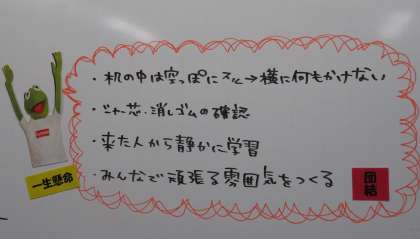 ・机の中は空っぽにする→横に何もかけない
・シャー芯・消しゴムの確認
・来た人から静かに学習
・みんなで頑張る雰囲気をつくる
一生懸命
団結